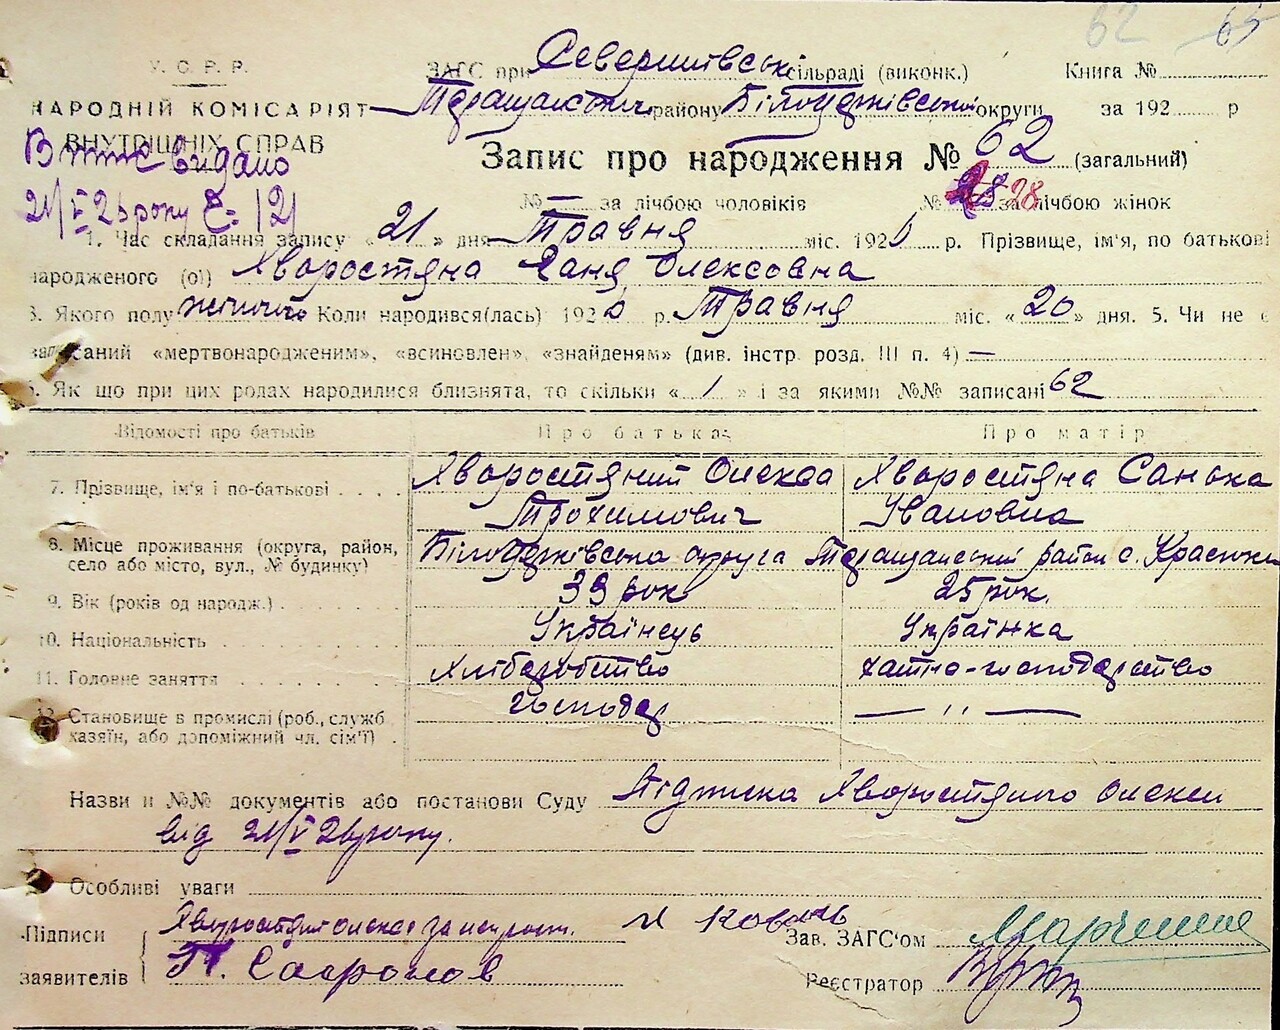 62 65
У. С. Р. Р.
НАРОДНІЙ КОМІСАРІЯТ
ВНУТРІШНІХ СПРАВ
ЗАГС при сільраді (виконк.) Книга №
району округи за 192 р
Запис про народження № 62 (загальний)
№ — за лічбою чоловіків № 28 28 за лічбою жінок
Витяг видано
21/V 26 року № 121
1. Час складання запису «21» дня Травня міс. 1926 р. Прізвище, ім'я, по батькові
народженого (ої) Хворостяна Ганя Олексовна
3. Якого полу жіночого Коли народився(лась) 1926 р. Травня міс. «20» дня. 5. Чи не є
записаний «мертвонародженим», «всиновлен», «знайденям» (див. інстр. розд. III п. 4) —
6. Як що при цих родах народилися близнята, то скільки «1» і за якими №№ записані 62
Відомості про батьків Про батька Про матір
7. Прізвище, ім'я і по-батькові Хворостяний Олекса Трохимович Хворостяна Санька Івановна
8. Місце проживання (округа, район, село або місто, вул., № будинку) округа район с.
9. Вік (років од народж.) 39 рок 25 рок.
10. Національність Українець Українка
11. Головне заняття Хліборобство хатнє-господарство
12. Становище в промислі (роб., служб хазяїн, або допоміжний чл. сім'ї) господар — ,, —
Назви и №№ документів або постанови Суду Підписка Хворостяного Олекси
від 21/V 26 року.
Особливі уваги
Підписи заявителів Хворостяний Олекса за неграм.
П. Сафронов
Зав. ЗАГС'ом Марченко
Реєстратор